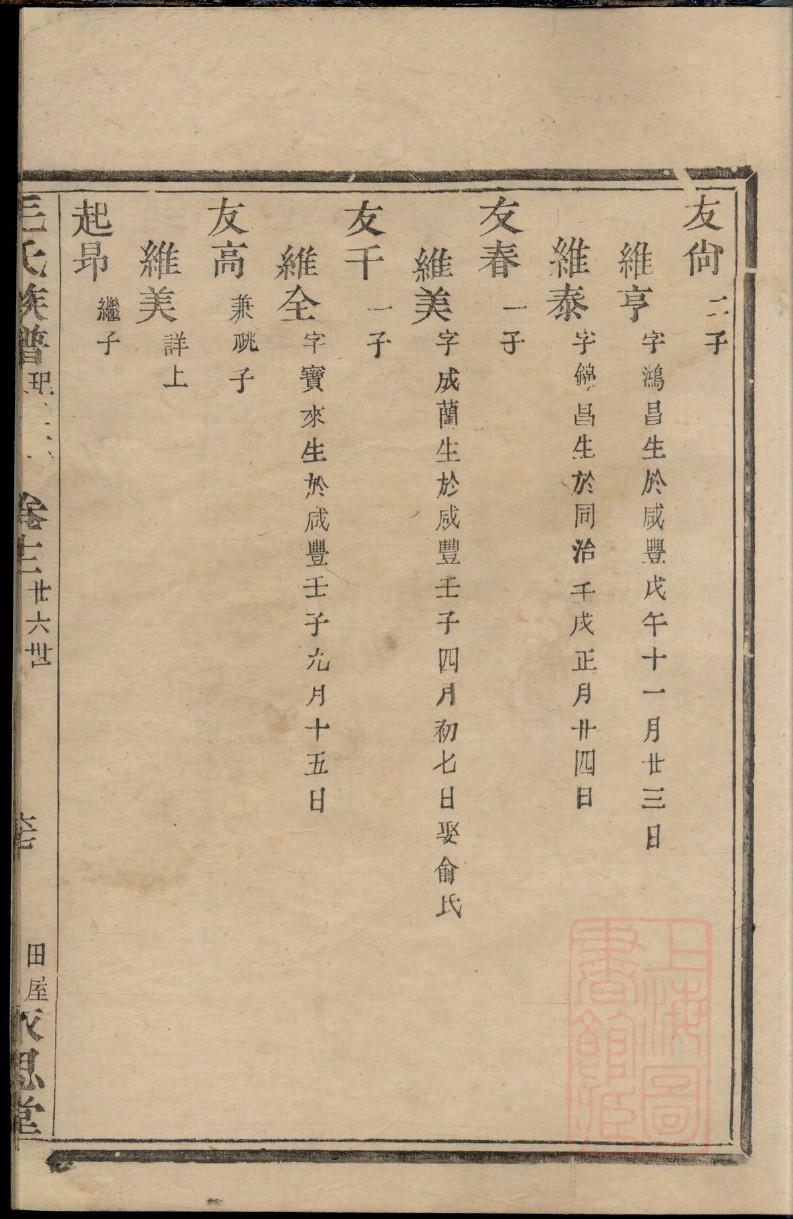 友尙 二子
維亨 字鴻昌生於咸豐戊午十一月廿三日
維泰 字錦昌生於同治壬戌正月廿四日
友春 一子
維美 字成蘭生於咸豐壬子四月初七日娶俞氏
友千 一子
維全 字寶來生於咸豐壬子九月十五日
友高 兼祧子
維美 詳上
起昂 繼子
氏族譜 卷十三 廿六世 田屋 思堂
上海圖
書館藏